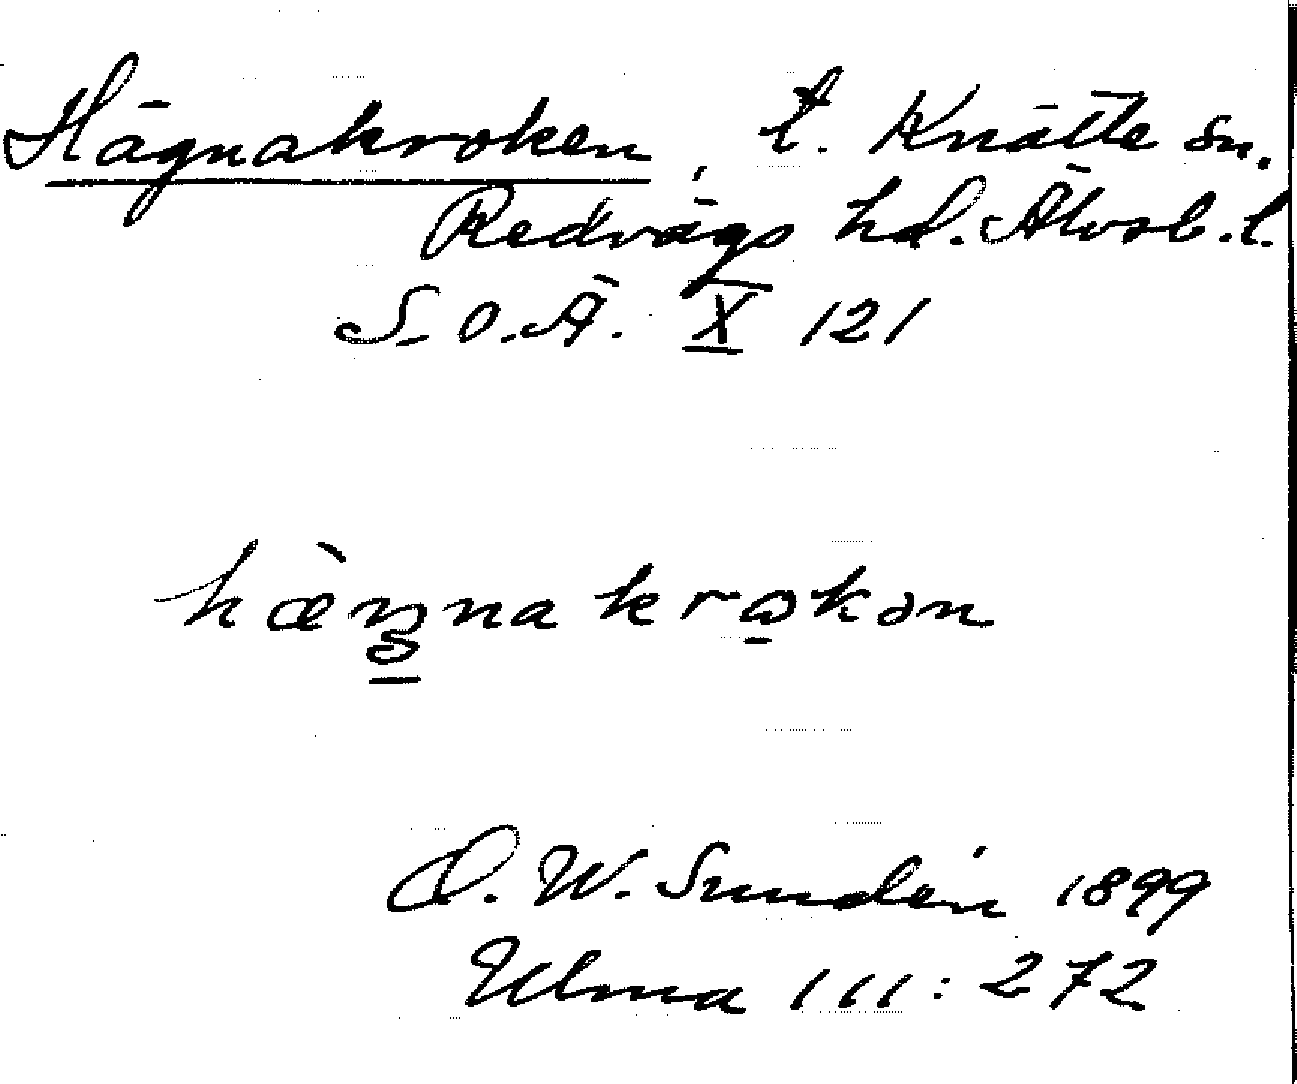 Hägnakroken, t. Knätte sn.
Redvägs hd. Älvsb. l.
S. O. Ä. X 121
hæ̀ŋnakrokən
D. W. Sundén 1899
Ulma 111:272